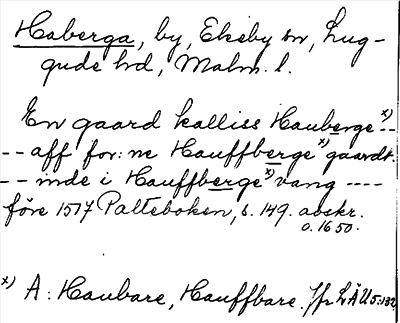 Haberga, by, Ekeby sn, Lug-
gude hd, Malm. l.
En gaard kalliss Hauberge x) --
-- aff for: ne Hauffberge x) gaardt.
-- inde i Hauffberge x) vang ----
före 1517 Palteboken, s. 149. avskr.
o. 1650.
x) A: Haubare, Hauffbare. Jfr LÄU5:132